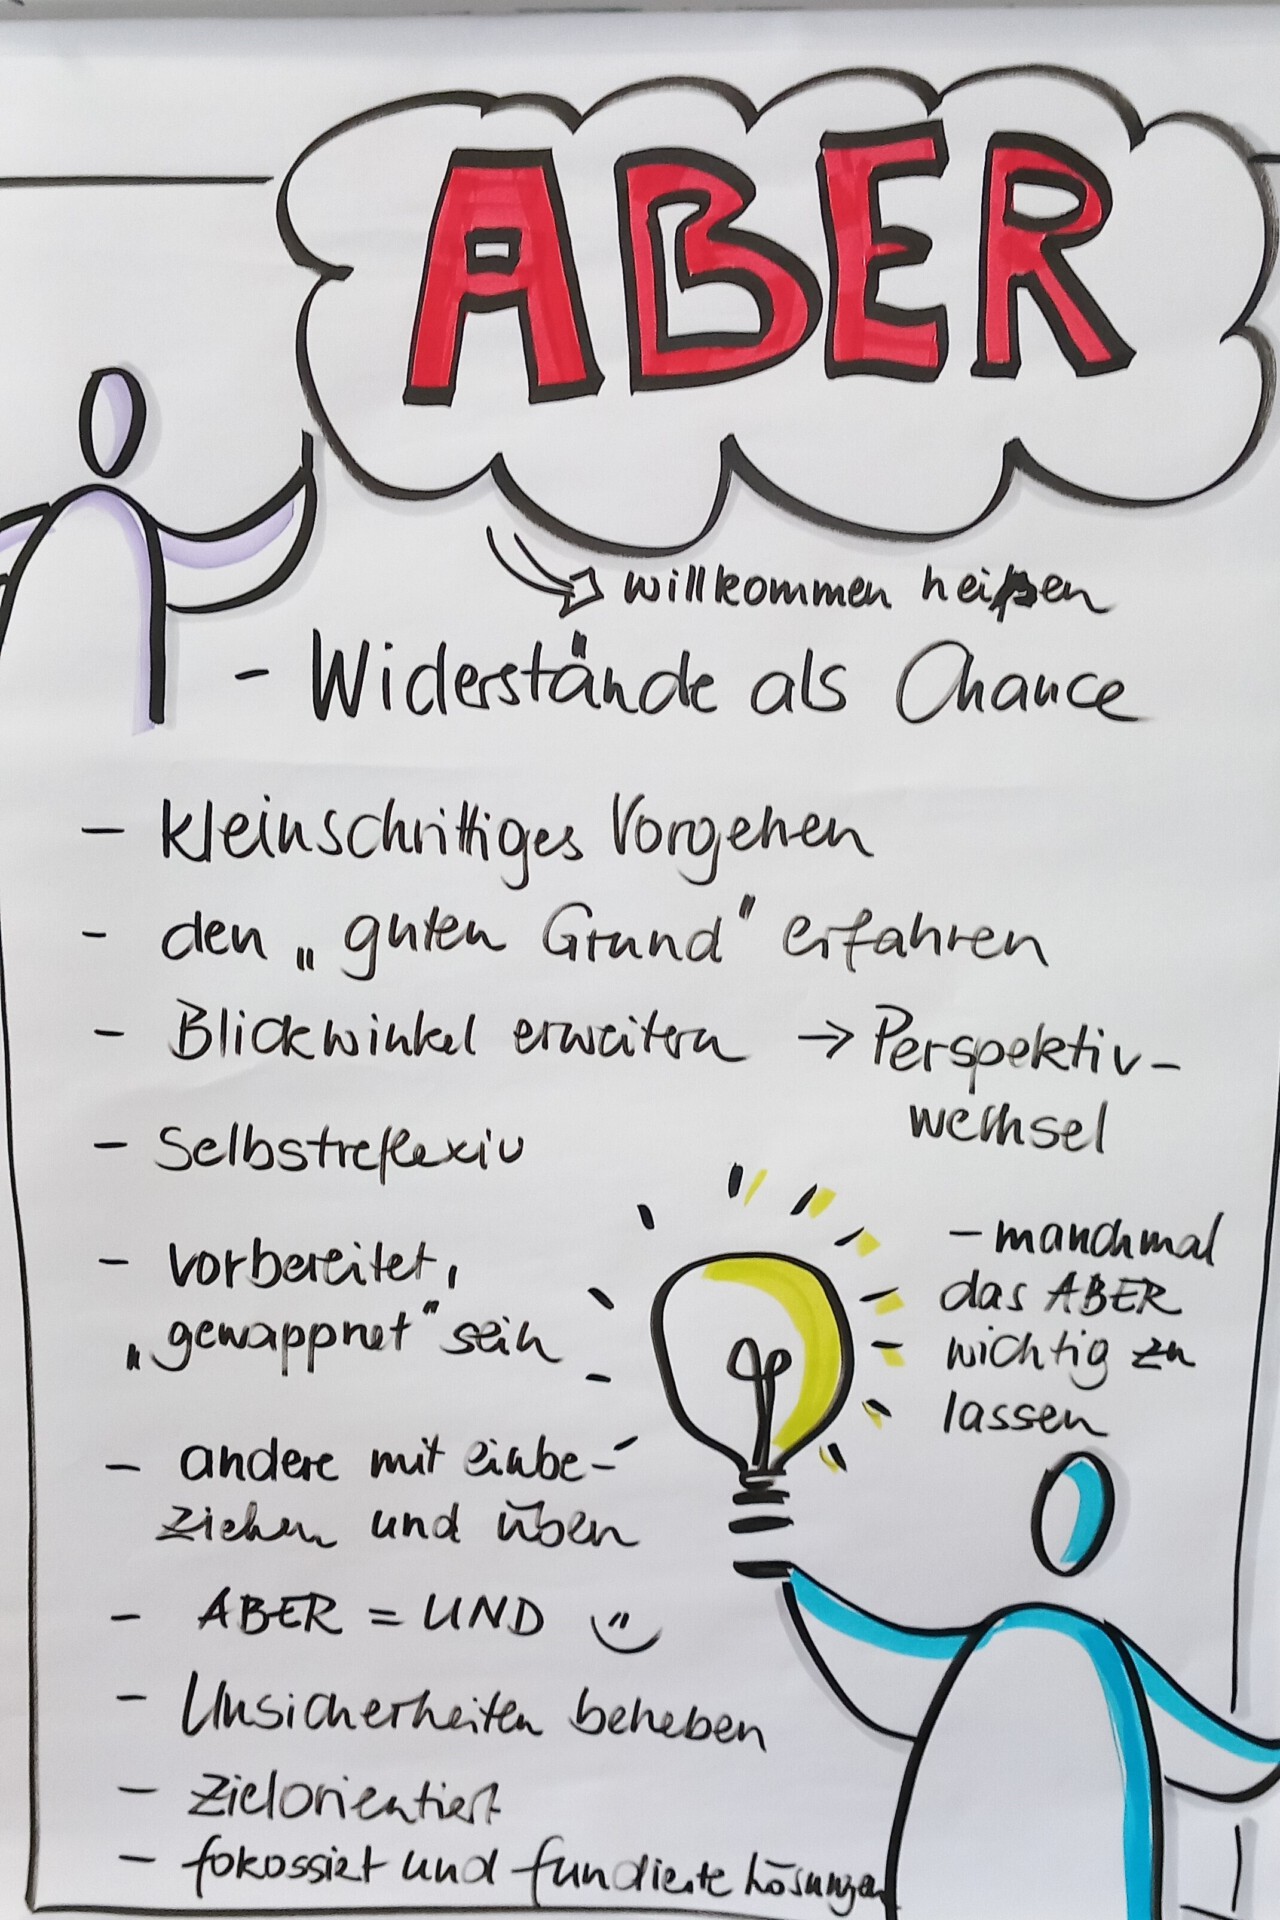 ABER
willkommen heißen
- Widerstände als Chance
- kleinschrittiges Vorgehen
- den „guten Grund" erfahren
- Blickwinkel erweitern → Perspektiv-
wechsel
- Selbstreflexiv
- vorbereitet,
„gewappnet" sein
- manchmal
das ABER
wichtig zu
lassen
- andere mit einbe-
ziehen und üben
- ABER = UND
- Unsicherheiten beheben
- zielorientiert
- fokossiert und fundierte Lösungen